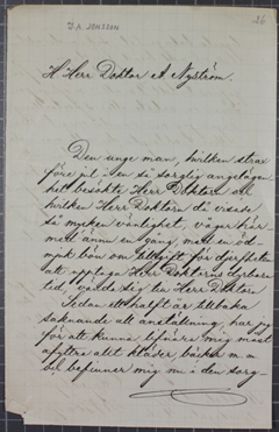 J. A. JONSSON
26
H Herr Doktor A Nyström.
Den unge man, hvilken strax
före jul i en så sorglig angelägen
het besökte Herr Doktorn och
hvilken Herr Doktorn då visade
så mycken vänlighet, vågar här
med ännu en gång, med en öd-
mjuk bön om tillgift för djerfheten
att upptaga Herr Doktorns dyrbara
tid, vända sig till Herr Doktorn
Sedan ett halft år tillbaka
saknande all anställning, har jag
för att kunna lifnära mig måst
afyttra allt kläder, böcker m m
och befinner mig nu i den sorg-